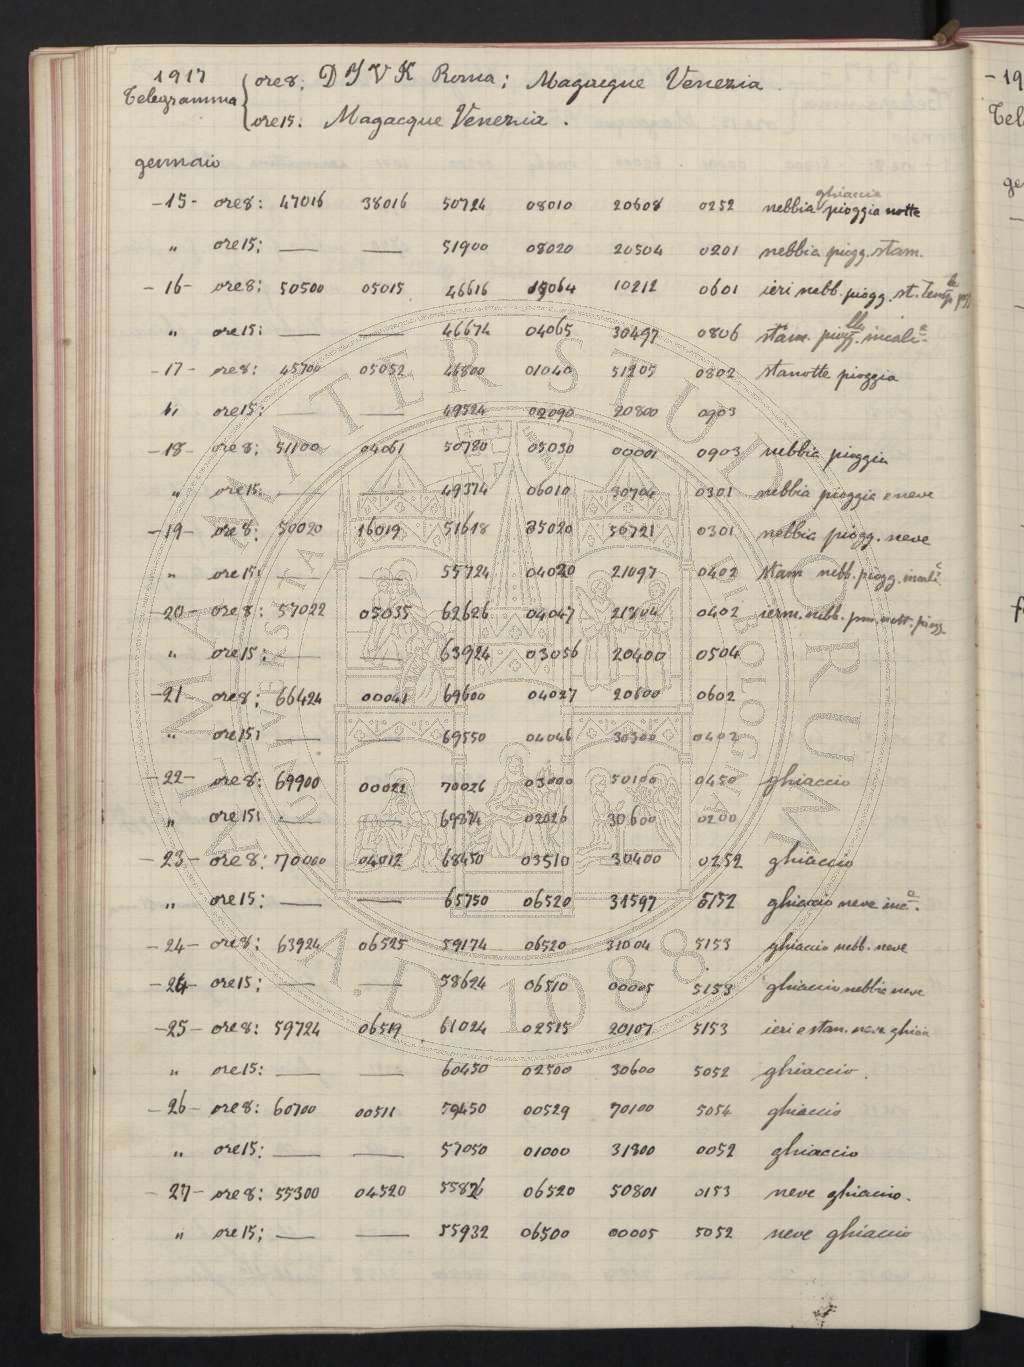 1917
Telegramma
ore 8: D Y V K Roma; Magacque Venezia
ore 15: Magacque Venezia.
gennaio
-15- ore 8: 47016 38016 50724 08010 20608 0252 nebbia ghiaccio pioggia notte
" ore 15: — — 51900 08020 20504 0201 nebbia piogg. stam.
-16- ore 8: 50500 05015 46616 19064 10212 0601 ieri nebb. piogg. st.
" ore 15: — — 46674 04065 30497 0806 stam. piogg.
-17- ore 8: 45700 05052 46800 01040 51205 0802 stanotte pioggia
" ore 15: — — 49524 02090 20800 0903
-18- ore 8: 51100 04061 50780 05030 00001 0903 nebbia pioggia
" ore 15: — — 49374 06010 30704 0301 nebbia pioggia e neve
-19- ore 8: 50020 16019 51618 35020 50721 0301 nebbia piogg. neve
" ore 15: — — 55724 04020 21097 0402 stam nebb. piogg.
-20- ore 8: 57022 05035 62626 04047 21804 0402 nebb. piogg.
" ore 15: — — 63924 03056 20400 0504
-21- ore 8: 66424 00041 69600 04027 20600 0602
" ore 15: — — 69550 04046 30300 0402
-22- ore 8: 69900 00022 70026 03000 50100 0450 ghiaccio
" ore 15: — — 69874 02026 30600 0200
-23- ore 8: 70000 04012 68450 03510 30400 0252 ghiaccio
" ore 15: — — 65750 06520 31597 5152 ghiaccio neve inc.
-24- ore 8: 63924 06525 59174 06520 31004 5153 ghiaccio nebb. neve
-24- ore 15: — — 58624 06510 00005 5153 ghiaccio nebbia neve
-25- ore 8: 59724 06519 61024 02515 20107 5153 ieri e stan. neve ghiac
" ore 15: — — 60450 02500 30600 5052 ghiaccio.
-26- ore 8: 60700 00511 59450 00529 70100 5054 ghiaccio
" ore 15: — — 57050 01000 31800 0052 ghiaccio
-27- ore 8: 55300 04520 55826 06520 50801 0153 neve ghiaccio.
" ore 15: — — 55932 06500 00005 5052 neve ghiaccio
ALMA MATER STUDIORUM
UNIVERSITÀ DI BOLOGNA
A.D. 1088
-19
Tel
ge